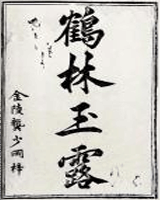 鶴林玉露
金陵龔少岡梓